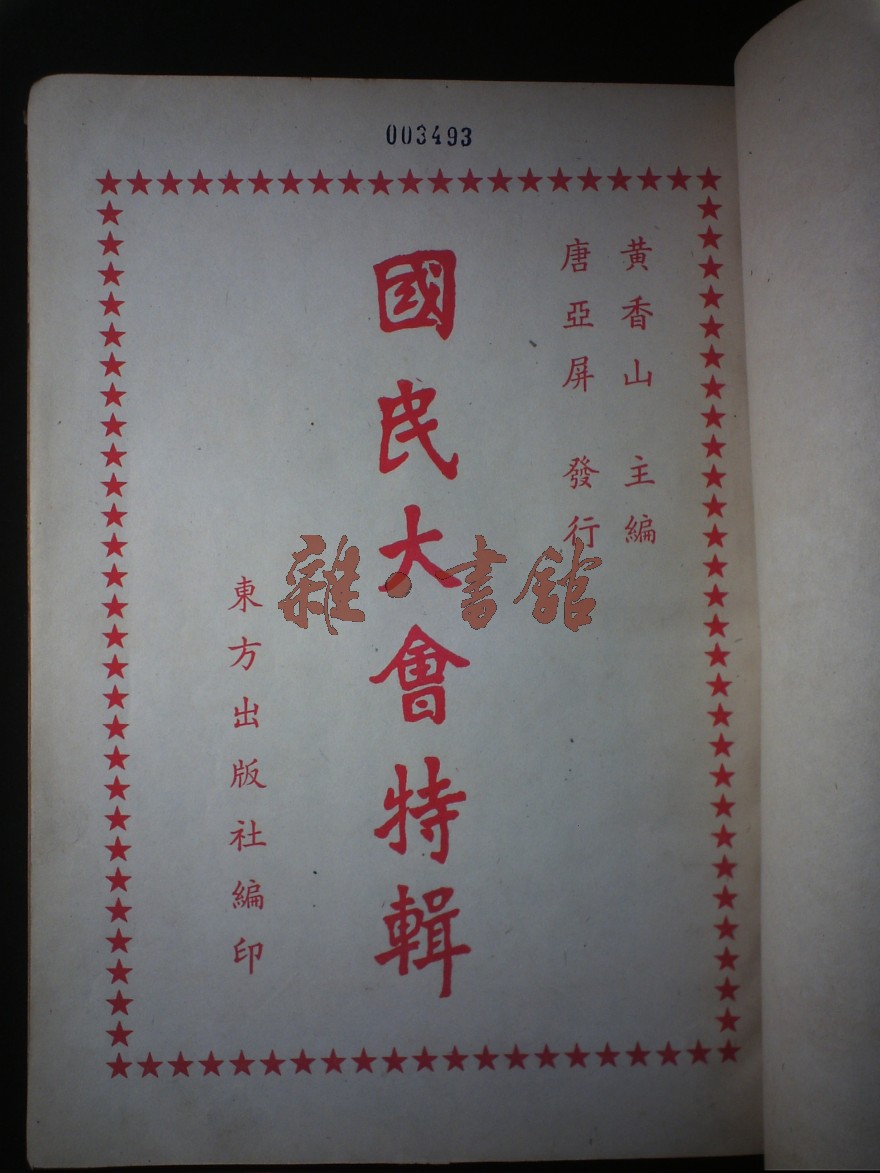 003493
黄香山 主編
唐亞屏 發行
國民大會特輯
東方出版社編印
雜·書館